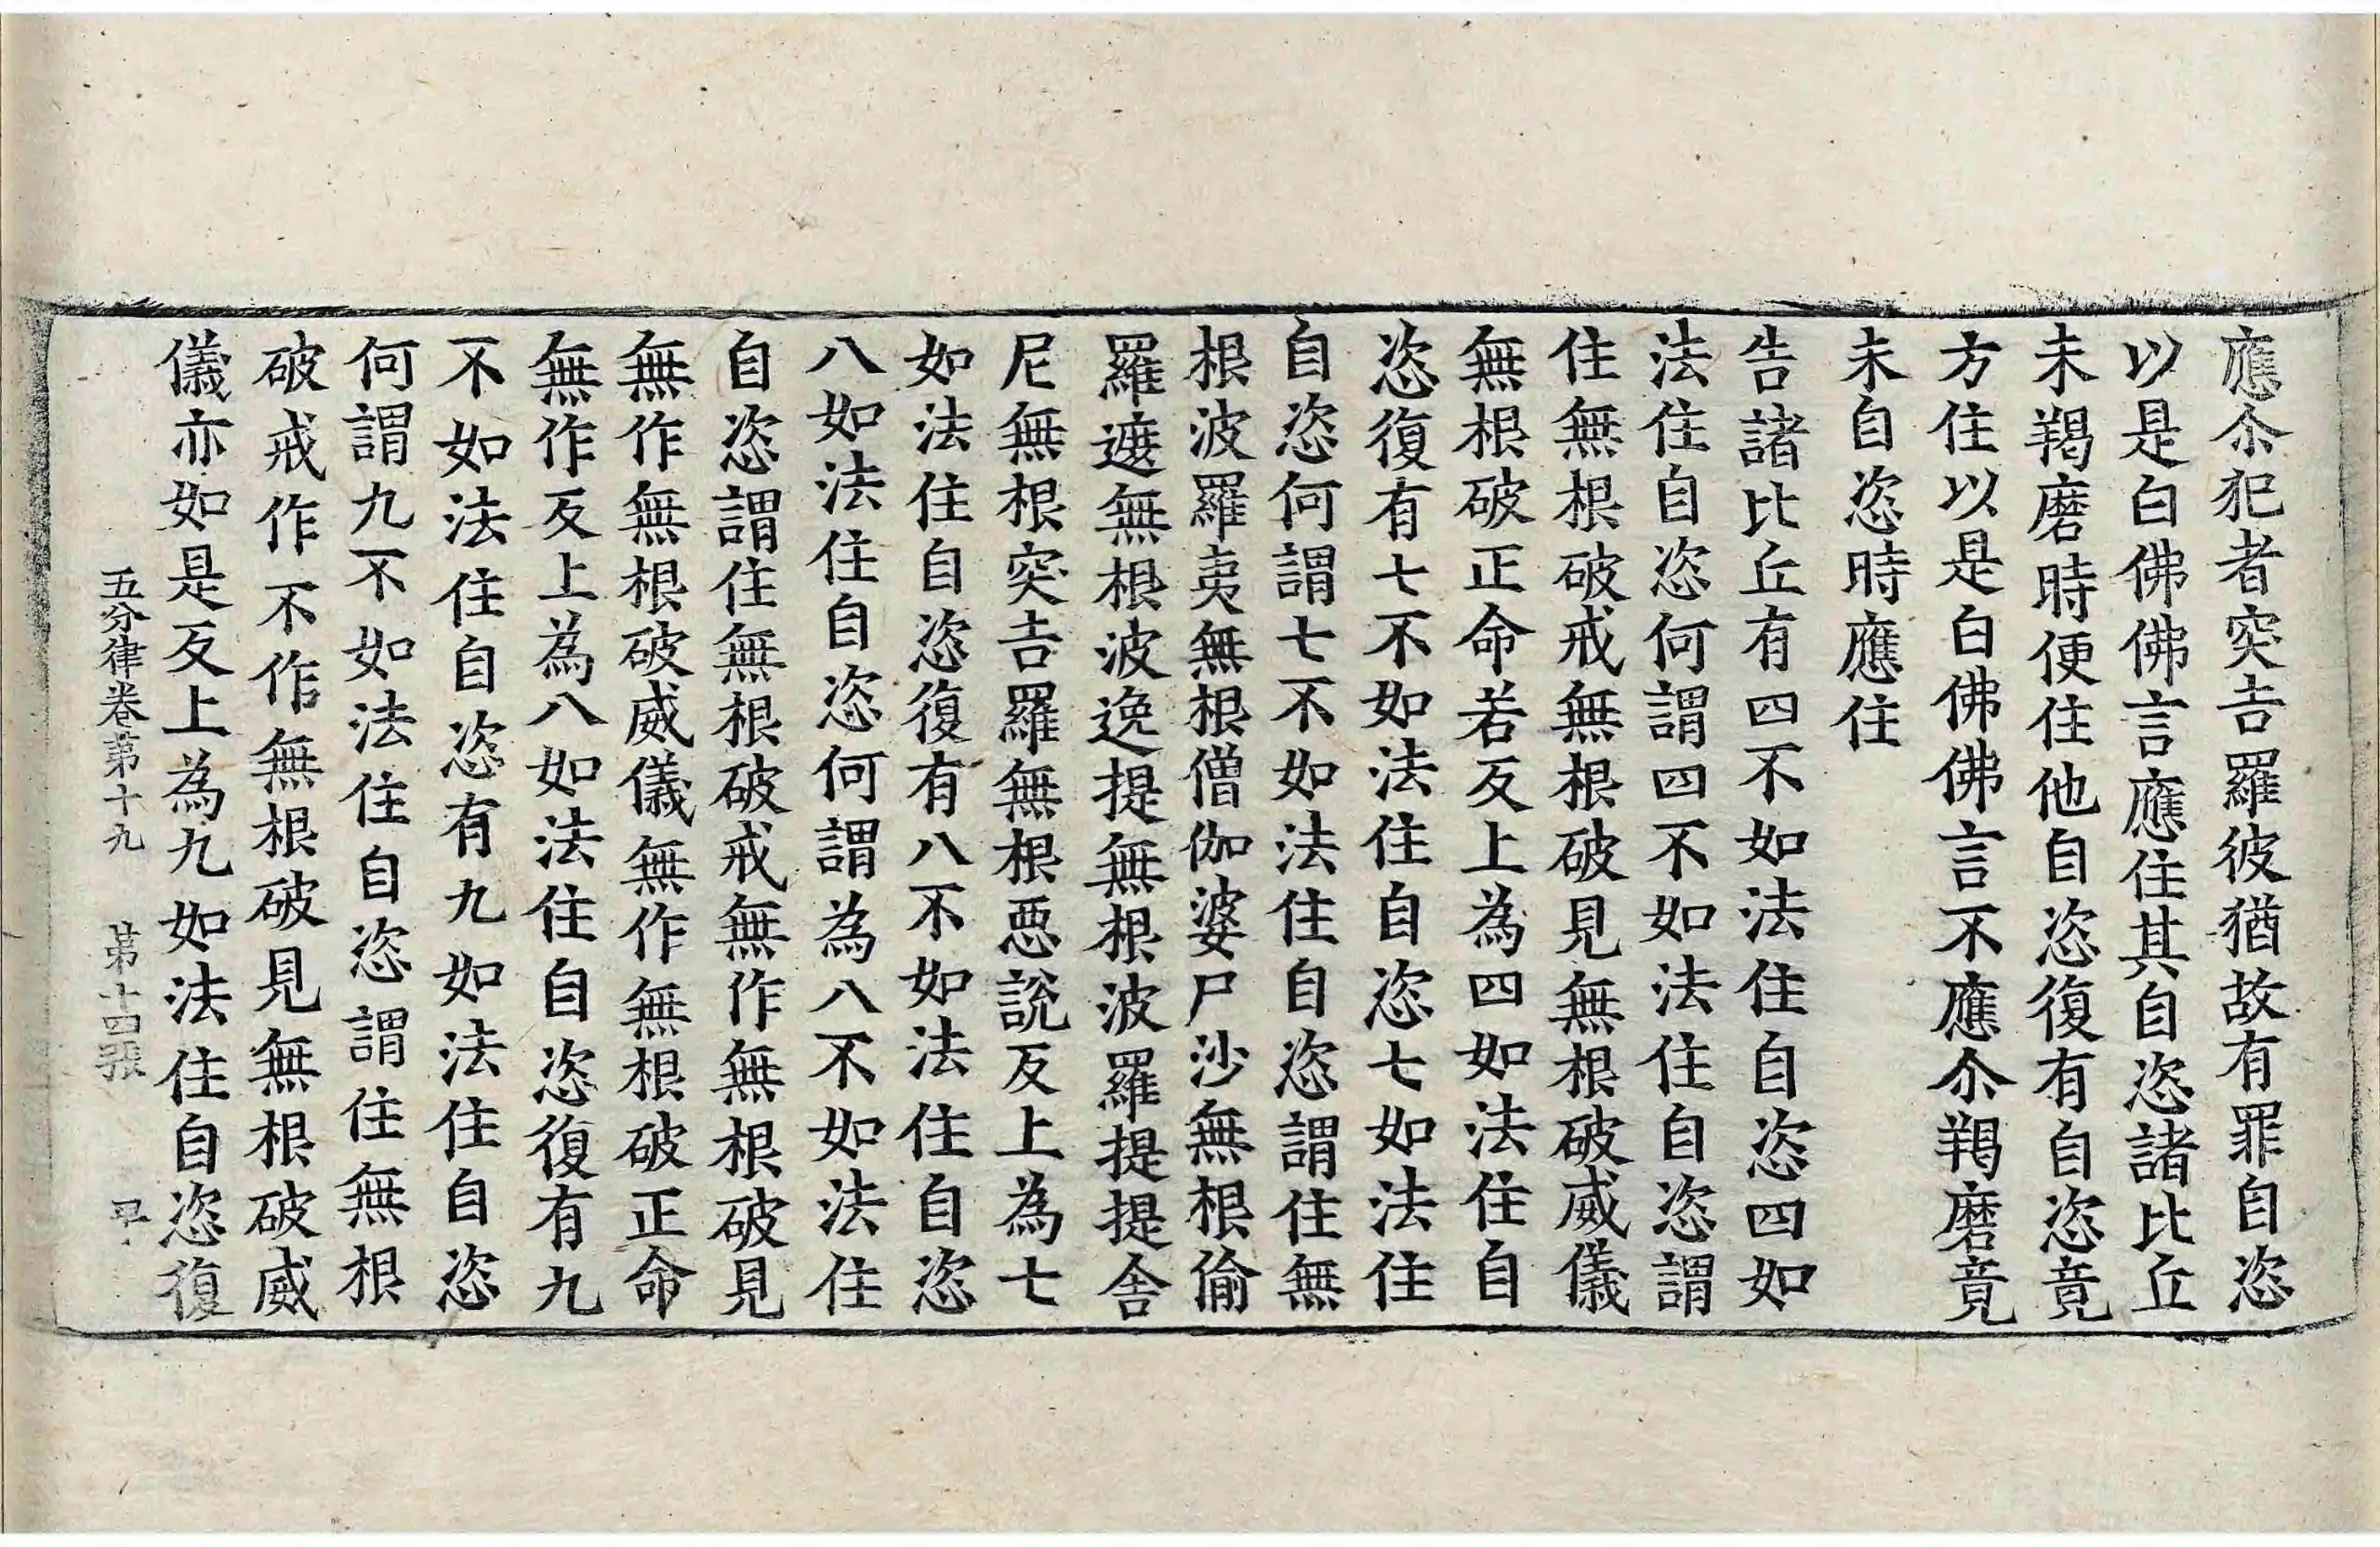 應尒犯者突吉羅彼猶故有罪自恣
以是白佛佛言應住其自恣諸比丘
未羯磨時便住他自恣復有自恣竟
方住以是白佛佛言不應尒羯磨竟
未自恣時應住
告諸比丘有四不如法住自恣四如
法住自恣何謂四不如法住自恣謂
住無根破戒無根破見無根破威儀
無根破正命若反上為四如法住自
恣復有七不如法住自恣七如法住
自恣何謂七不如法住自恣謂住無
根波羅夷無根僧伽婆尸沙無根偷
羅遮無根波逸提無根波羅提提舍
尼無根突吉羅無根惡說反上為七
如法住自恣復有八不如法住自恣
八如法住自恣何謂為八不如法住
自恣謂住無根破戒無作無根破見
無作無根破威儀無作無根破正命
無作反上為八如法住自恣復有九
不如法住自恣有九如法住自恣
何謂九不如法住自恣謂住無根
破戒作不作無根破見無根破威
儀亦如是反上為九如法住自恣復
五分律卷第十九 第十四張